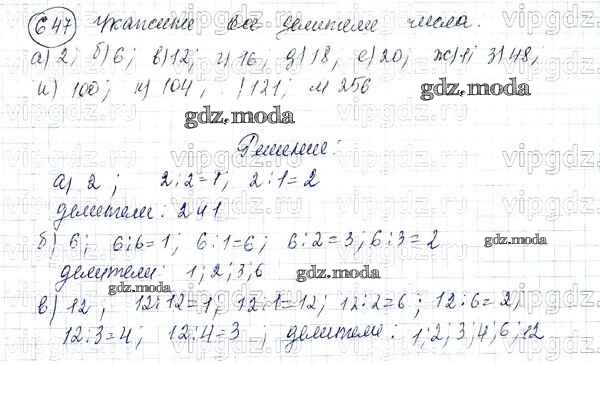 647 Укажите все делители числа.
а) 2; б) 6; в) 12; г) 16, д) 18, е) 20; ж) 1; з) 48,
и) 100; к) 104, 121; м 256
gdz.moda
gdz.moda
Решение:
а) 2; 2:2=1; 2:1=2
делители: 2 и 1
б) 6; 6:6=1; 6:1=6; 6:2=3; 6:3=2
gdz.moda
делители: 1; 2; 3; 6
gdz.moda
gdz.moda
в) 12, 12:12=1, 12:1=12; 12:2=6; 12:6=2,
12:3=4; 12:4=3; делители: 1; 2; 3; 4; 6, 12
vipgdz.ru